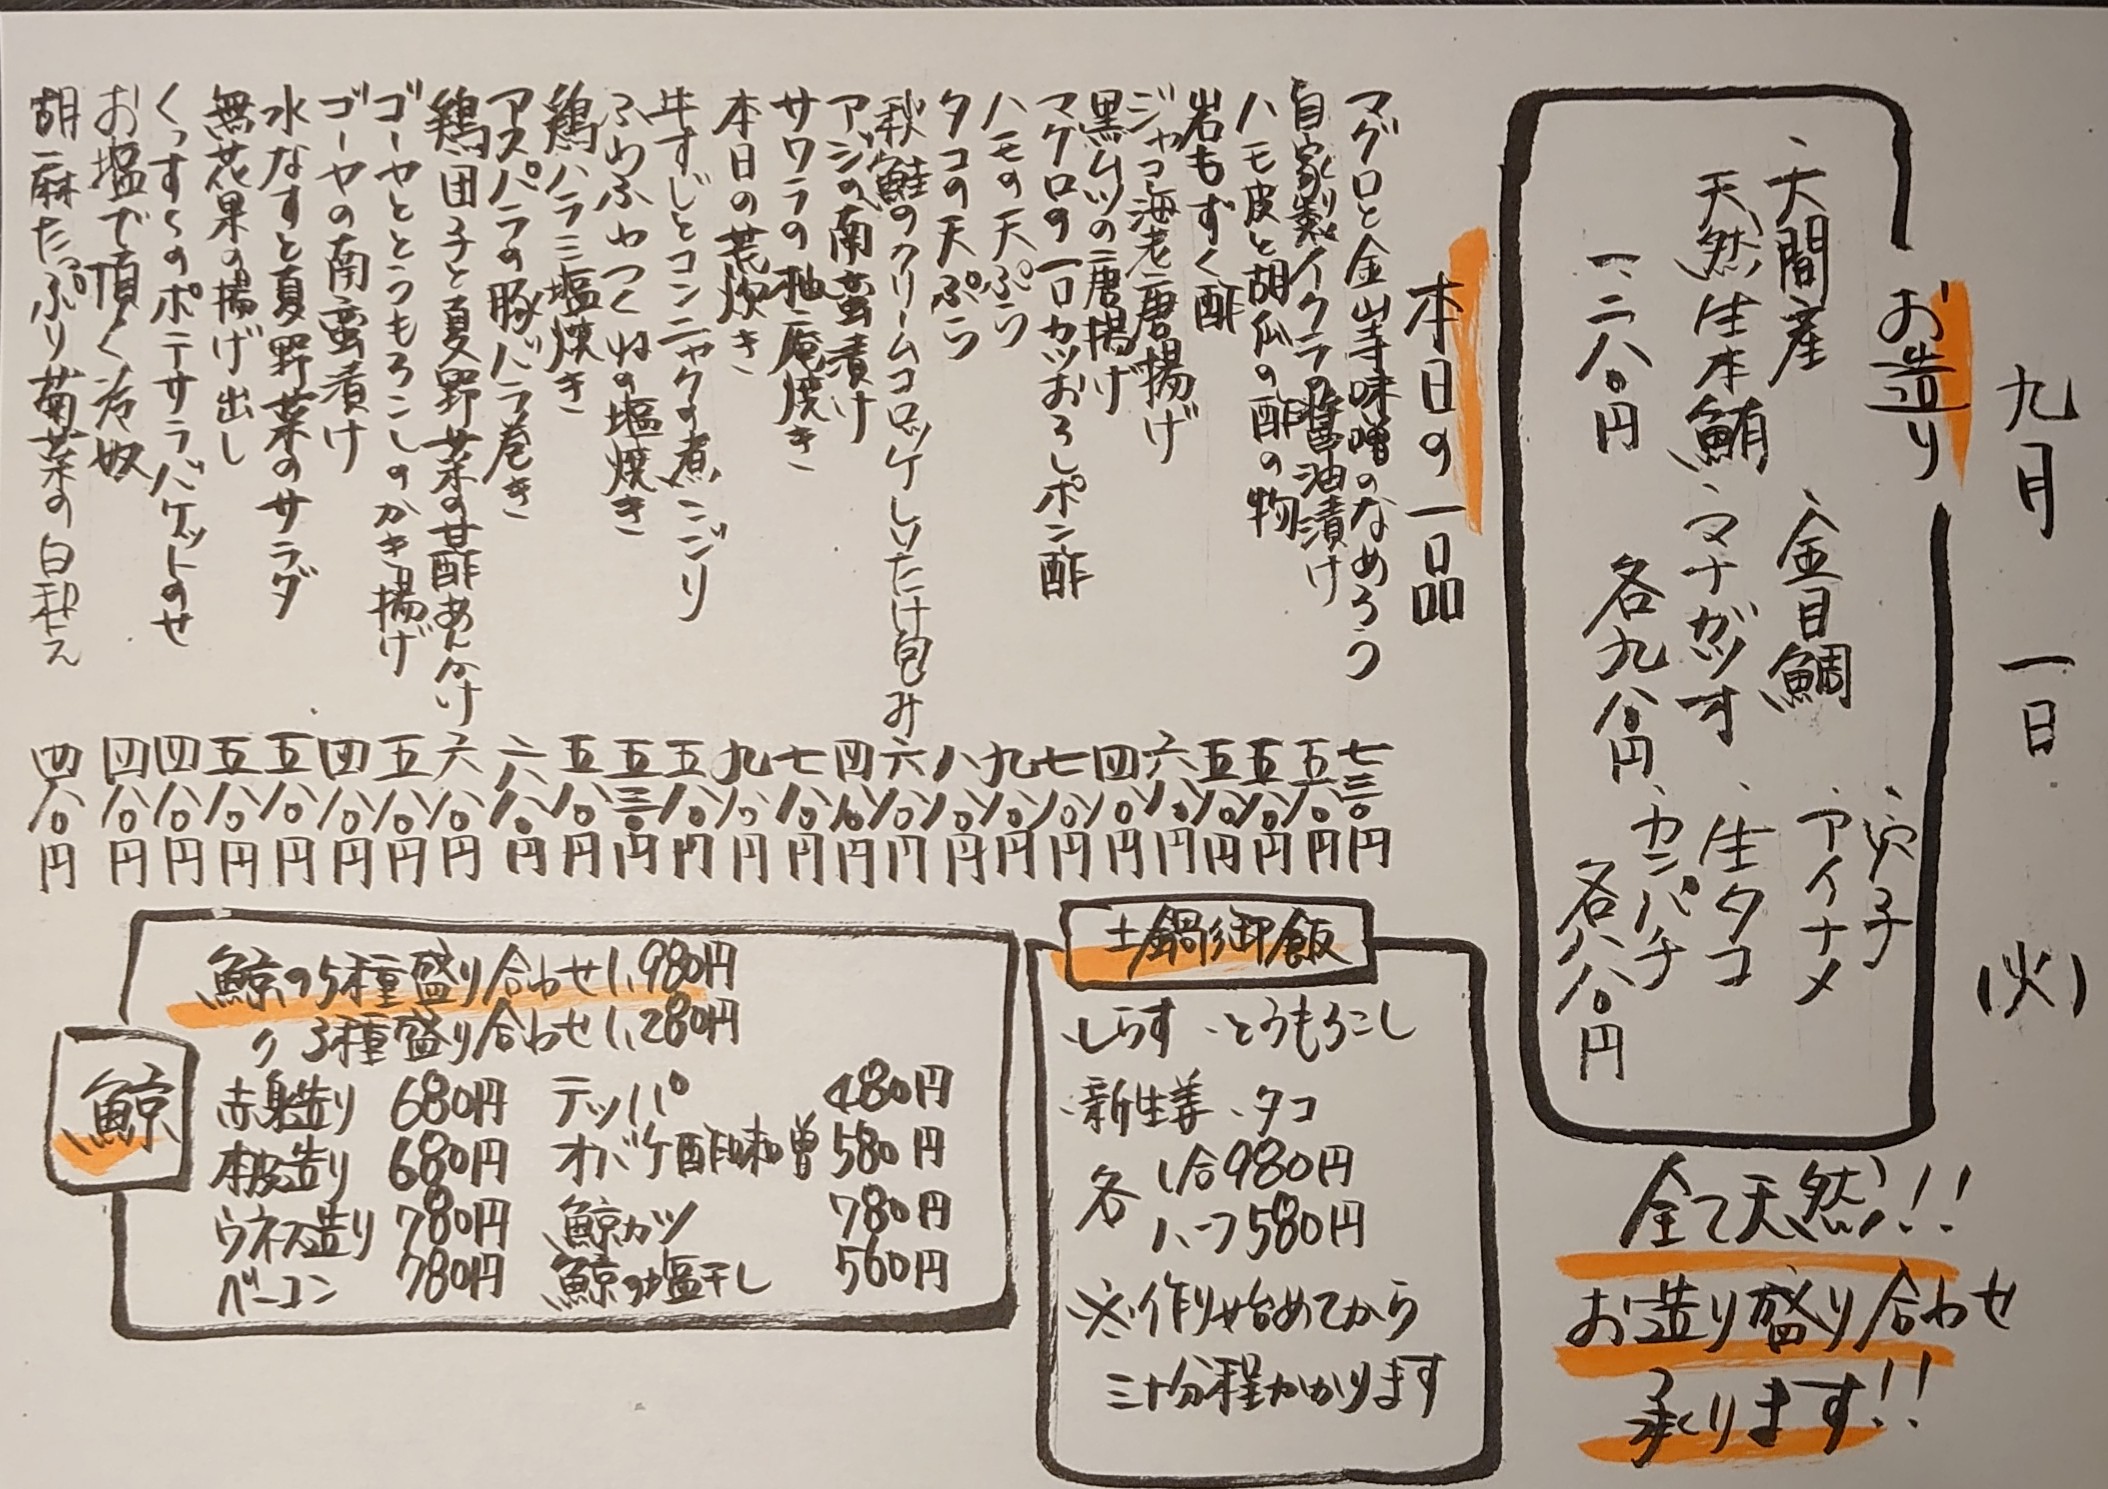 九月 一日 (火)
お造り
、大間産
天然生本鮪
一、二八〇円
、金目鯛
、マナガツオ
各九八〇円
、穴子
、アイナメ
、生タコ
、カンパチ
各八八〇円
全て天然!!
お造り盛り合わせ
承ります!!
本日の一品
マグロと金山寺味噌のなめろう 七三〇円
自家製イクラの醤油漬け 五八〇円
ハモ皮と胡瓜の酢の物 五八〇円
岩もずく酢 五八〇円
ジャコ海老唐揚げ 六八〇円
黒ムツの唐揚げ 四八〇円
マグロの一口カツおろしポン酢 七八〇円
ハモの天ぷら 九八〇円
タコの天ぷら 八八〇円
秋鮭のクリームコロッケしいたけ包み 六八〇円
アジの南蛮漬け 四八〇円
サワラの柚庵焼き 七八〇円
本日の荒炊き 九八〇円
牛すじとコンニャクの煮こごり 五八〇円
ふわふわつくねの塩焼き 五三〇円
鶏ハラミ塩焼き 五八〇円
アスパラの豚バラ巻き 六八〇円
鶏団子と夏野菜の甘酢あんかけ 六八〇円
ゴーヤととうもろこしのかき揚げ 五八〇円
ゴーヤの南蛮漬け 四八〇円
水なすと夏野菜のサラダ 五八〇円
無花果の揚げ出し 五八〇円
くんすらのポテサラバゲットのせ 四八〇円
お塩で頂く冷奴 四八〇円
胡麻たっぷり菊菜の白和え 四八〇円
土鍋御飯
、しらす 、とうもろこし
、新生姜 、タコ
各 1合980円
ハーフ580円
※作り始めてから
三十分程かかります
鯨
鯨の5種盛り合わせ1,980円
〃 3種盛り合わせ1,280円
赤身造り 680円 テッパ 480円
本皮造り 680円 オバケ酢味噌 580円
ウネス造り 780円 鯨カツ 780円
ベーコン 780円 鯨の塩干し 560円